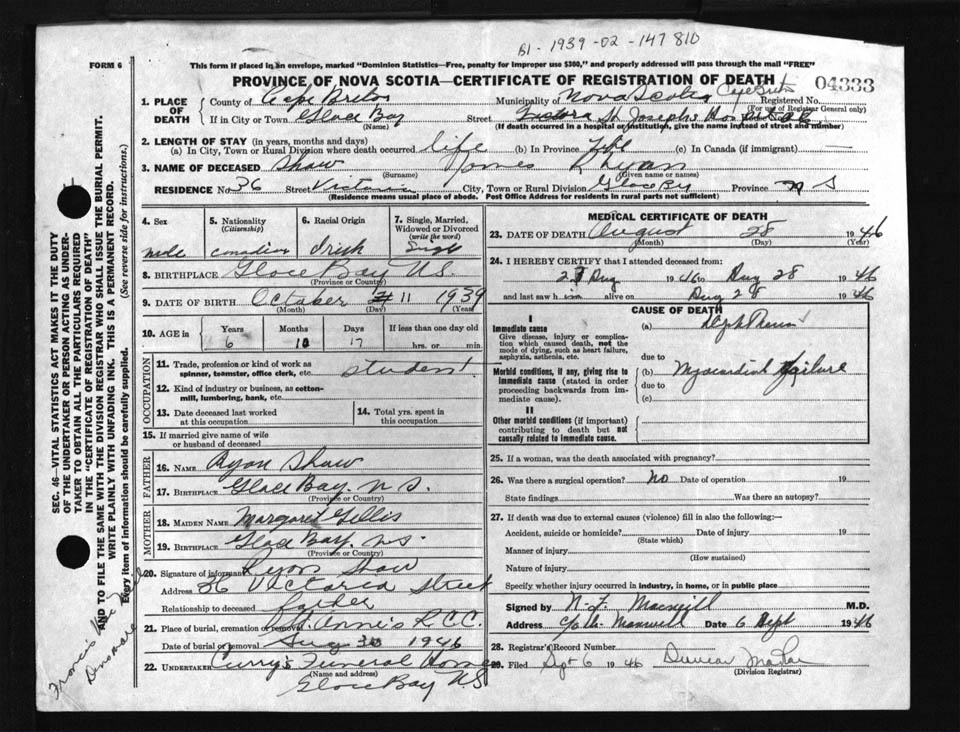 B1 - 1939 - 02 - 147 810
FORM 6
This form if placed in an envelope, marked "Dominion Statistics—Free, penalty for improper use $300," and properly addressed will pass through the mail "FREE"
PROVINCE OF NOVA SCOTIA—CERTIFICATE OF REGISTRATION OF DEATH
04333
1. PLACE OF DEATH
County of Cape Breton Municipality of Nova Scotia Cape Breton Registered No.
(For use of Registrar General only)
If in City or Town Glace Bay Street St Josephs Hospital
(Name) (If death occurred in a hospital or institution, give the name instead of street and number)
2. LENGTH OF STAY (in years, months and days)
(a) In City, Town or Rural Division where death occurred life (b) In Province life (c) In Canada (if immigrant) —
3. NAME OF DECEASED Shaw James
(Surname) (Given name or names)
RESIDENCE No. 36 Street Victoria City, Town or Rural Division Glace Bay Province N S
(Residence means usual place of abode. Post Office Address for residents in rural parts not sufficient)
4. Sex
male
5. Nationality
(Citizenship)
canadian
6. Racial Origin
Irish
7. Single, Married, Widowed or Divorced
(write the word)
Single
8. BIRTHPLACE Glace Bay N.S.
(Province or Country)
9. DATE OF BIRTH October 11 1939
(Month) (Day) (Year)
10. AGE in
Years Months Days If less than one day old
6 10 17 hrs. or min.
OCCUPATION
11. Trade, profession or kind of work as spinner, teamster, office clerk, etc. student
12. Kind of industry or business, as cotton-mill, lumbering, bank, etc.
13. Date deceased last worked at this occupation
14. Total yrs. spent in this occupation
15. If married give name of wife or husband of deceased
FATHER
16. NAME Ryon Shaw
17. BIRTHPLACE Glace Bay. N S.
(Province or Country)
MOTHER
18. MAIDEN NAME Margaret Gillis
19. BIRTHPLACE Glace Bay. N.S.
(Province or Country)
20. Signature of informant Ryon Shaw
Address 36 Victoria Street
Relationship to deceased father
21. Place of burial, cremation or removal St. Anne's R.C.C.
Date of burial or removal Aug 30 1946
22. UNDERTAKER Curry's Funeral Home
(Name and address)
Glace Bay N.S.
MEDICAL CERTIFICATE OF DEATH
23. DATE OF DEATH August 28 1946
(Month) (Day) (Year)
24. I HEREBY CERTIFY that I attended deceased from:
27 Aug 1946 to Aug 28 1946
and last saw him alive on Aug 28 1946
CAUSE OF DEATH
I
Immediate cause
Give disease, injury or complication which caused death, not the mode of dying, such as heart failure, asphyxia, asthenia, etc.
(a)
due to
Morbid conditions, if any, giving rise to immediate cause (stated in order proceeding backwards from immediate cause).
(b) Myocardial failure
due to
(c)
II
Other morbid conditions (if important) contributing to death but not causally related to immediate cause.
25. If a woman, was the death associated with pregnancy?
26. Was there a surgical operation? No Date of operation 19
State findings Was there an autopsy?
27. If death was due to external causes (violence) fill in also the following:—
Accident, suicide or homicide? Date of injury 19
(State which)
Manner of injury
(How sustained)
Nature of injury
Specify whether injury occurred in industry, in home, or in public place
Signed by N. F. Macneill M.D.
Address Date 6 Sept 1946
28. Registrar's Record Number
29. Filed Sept 6 1946 Duncan
(Division Registrar)
SEC. 46—VITAL STATISTICS ACT MAKES IT THE DUTY OF THE UNDERTAKER OR PERSON ACTING AS UNDERTAKER TO OBTAIN ALL THE PARTICULARS REQUIRED IN THE "CERTIFICATE OF REGISTRATION OF DEATH" AND TO FILE THE SAME WITH THE DIVISION REGISTRAR WHO SHALL ISSUE THE BURIAL PERMIT.
WRITE PLAINLY WITH UNFADING INK. THIS IS A PERMANENT RECORD.
Every item of information should be carefully supplied. (See reverse side for instructions.)
Francis
Densmore